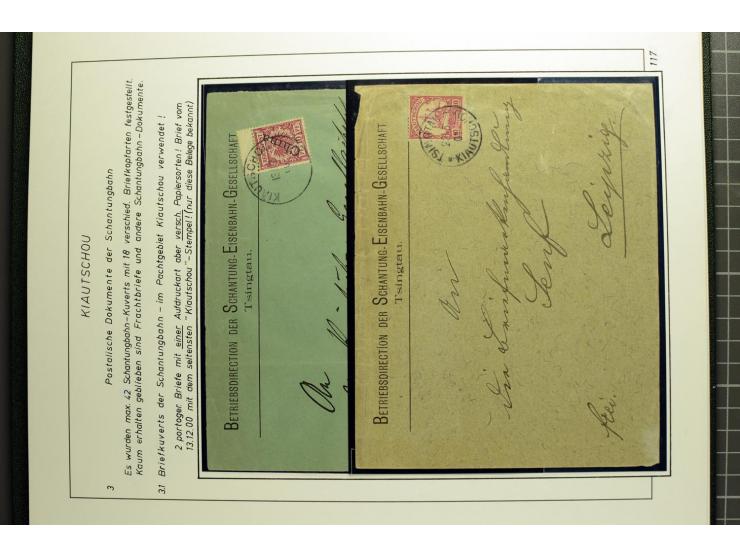 KIAUTSCHOU
3 Postalische Dokumente der Schantungbahn
Es wurden max. 42 Schantungbahn-Kuverts mit 18 verschied. Briefkopfarten festgestellt.
Kaum erhalten geblieben sind Frachtbriefe und andere Schantungbahn-Dokumente.
3.1 Briefkuverts der Schantungbahn - im Pachtgebiet Kiautschou verwendet !
2 portoger. Briefe mit einer Aufdruckart aber versch. Papiersorten! Brief vom
13.12.00 mit dem seltensten "Kiautschou"-Stempel! (nur diese Belege bekannt)
BETRIEBSDIRECTION DER SCHANTUNG-EISENBAHN-GESELLSCHAFT
Tsingtau.
China
KIAUTSCHOU
An
BETRIEBSDIRECTION DER SCHANTUNG-EISENBAHN-GESELLSCHAFT
Tsingtau.
TSINTAU
KIAUTSCHOU
An
die Briefmarkenhandlung
Senf
frei.
Leipzig.
117